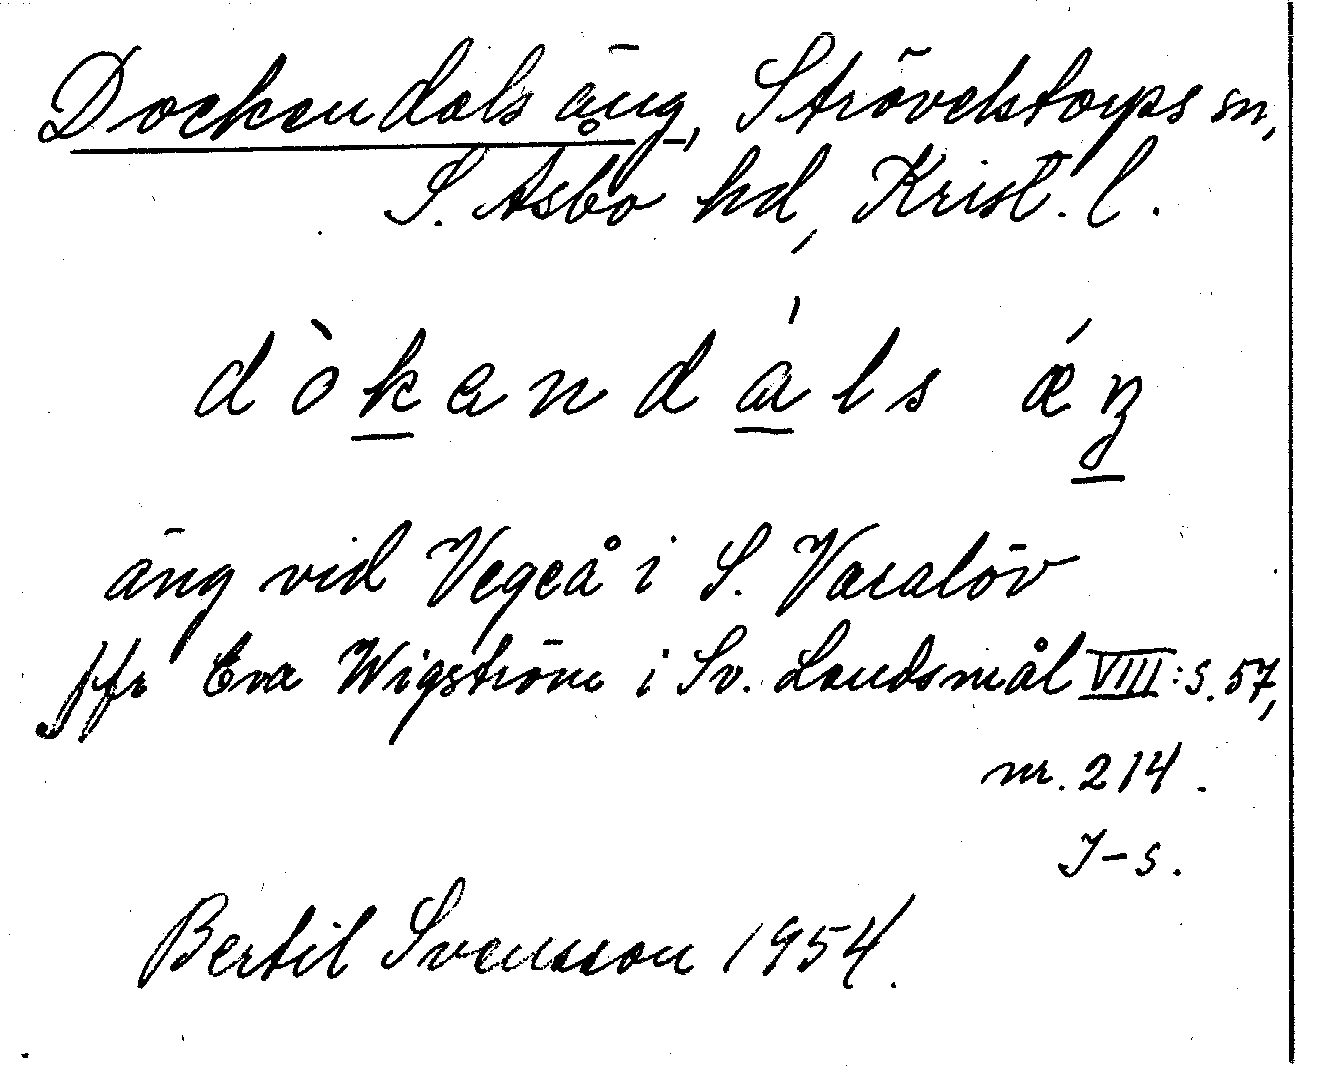 Dockendals äng, Strövelstorps sn,
S. Åsbo hd, Krist. l.
dòkandáls ǽŋ
äng vid Vegeå i S. Varalöv
jfr Eva Wigström i Sv. Landsmål VIII: s. 57,
nr. 214.
J-s.
Bertil Svensson 1954.